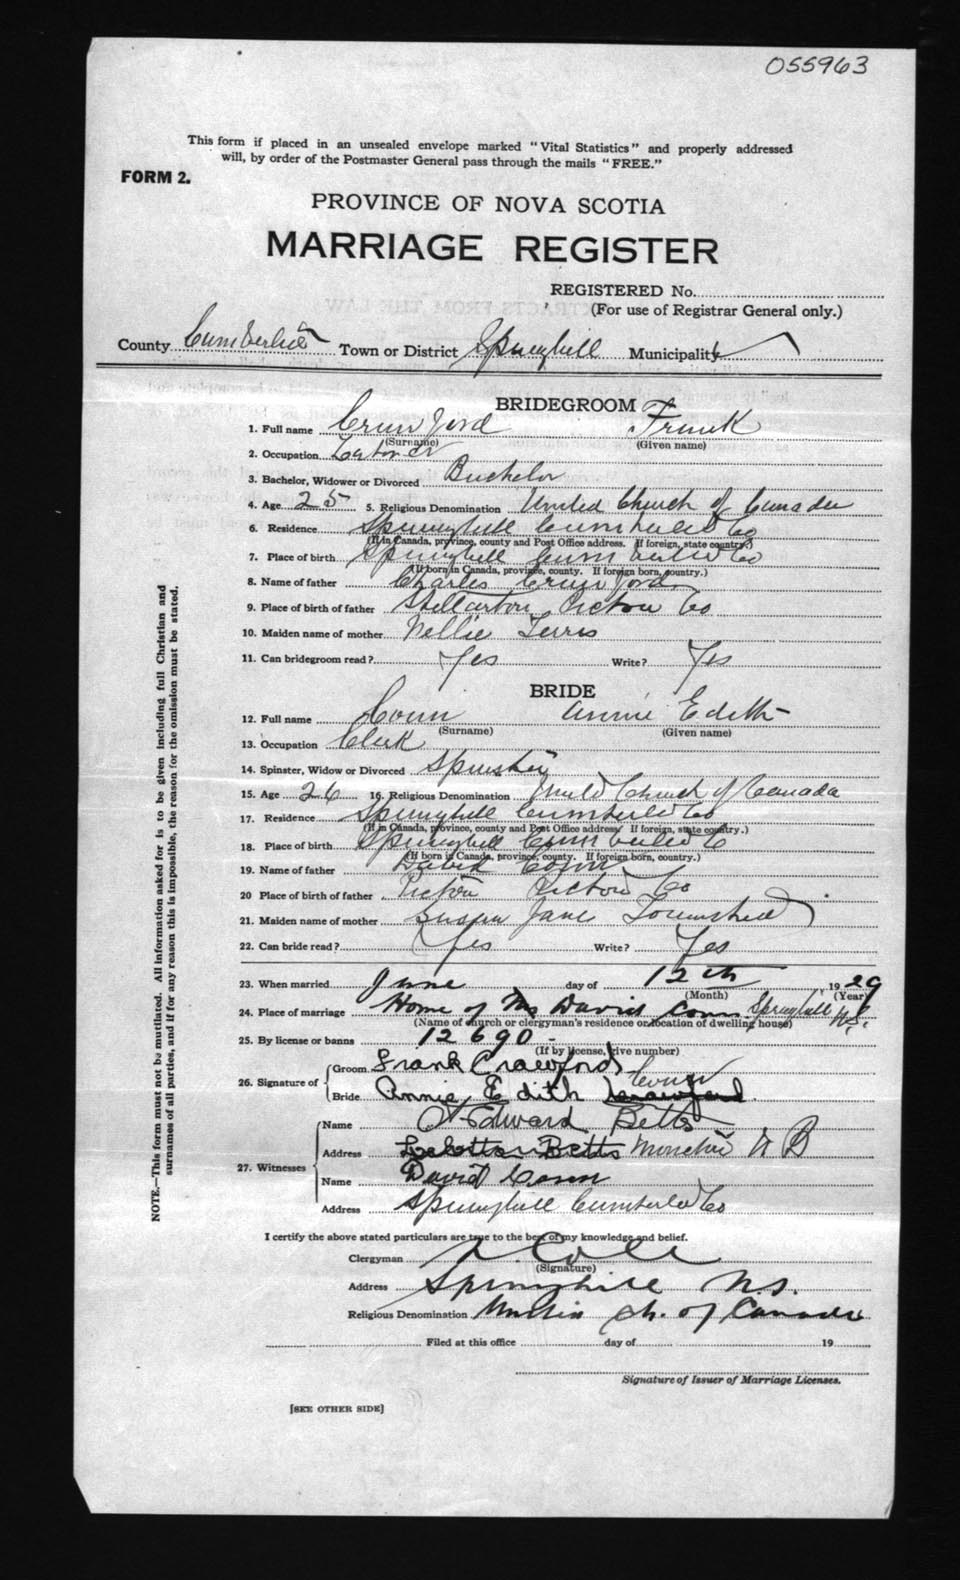 055963
This form if placed in an unsealed envelope marked "Vital Statistics" and properly addressed
will, by order of the Postmaster General pass through the mails "FREE."
FORM 2.
PROVINCE OF NOVA SCOTIA
MARRIAGE REGISTER
REGISTERED No.
(For use of Registrar General only.)
County Cumberland Town or District Springhill Municipality
BRIDEGROOM
1. Full name Crawford Frank
(Surname) (Given name)
2. Occupation Laborer
3. Bachelor, Widower or Divorced Bachelor
4. Age 25 5. Religious Denomination United Church of Canada
6. Residence Springhill Cumberland Co
(If in Canada, province, county and Post Office address. If foreign, state country.)
7. Place of birth Springhill Cumberland Co
(If born in Canada, province, county. If foreign born, country.)
8. Name of father Charles Crawford
9. Place of birth of father Stellarton Pictou Co
10. Maiden name of mother Nellie Terris
11. Can bridegroom read? Yes Write? Yes
BRIDE
12. Full name Conn Annie Edith
(Surname) (Given name)
13. Occupation Clerk
14. Spinster, Widow or Divorced Spinster
15. Age 26 16. Religious Denomination United Church of Canada
17. Residence Springhill Cumberland Co
(If in Canada, province, county and Post Office address. If foreign, state country.)
18. Place of birth Springhill Cumberland Co
(If born in Canada, province, county. If foreign born, country.)
19. Name of father David Conn
20 Place of birth of father Pictou Pictou Co
21. Maiden name of mother Susan Jane Townshend
22. Can bride read? Yes Write? Yes
23. When married June day of 12th 1929
(Month) (Year)
24. Place of marriage Home of Mr David Conn Springhill N.S.
(Name of church or clergyman's residence or location of dwelling house)
25. By license or banns 12690
(If by license, give number)
26. Signature of Groom Frank Crawford
Bride Annie Edith Crawford Conn
27. Witnesses
Name Edward Betts
Address Betts Moncton N B
Name David Conn
Address Springhill Cumberland Co
I certify the above stated particulars are true to the best of my knowledge and belief.
Clergyman
(Signature)
Address Springhill N.S.
Religious Denomination United Ch. of Canada
Filed at this office day of 19
Signature of Issuer of Marriage Licenses.
[SEE OTHER SIDE]
NOTE.—This form must not be mutilated. All information asked for is to be given including full Christian and
surnames of all parties, and if for any reason this is impossible, the reason for the omission must be stated.